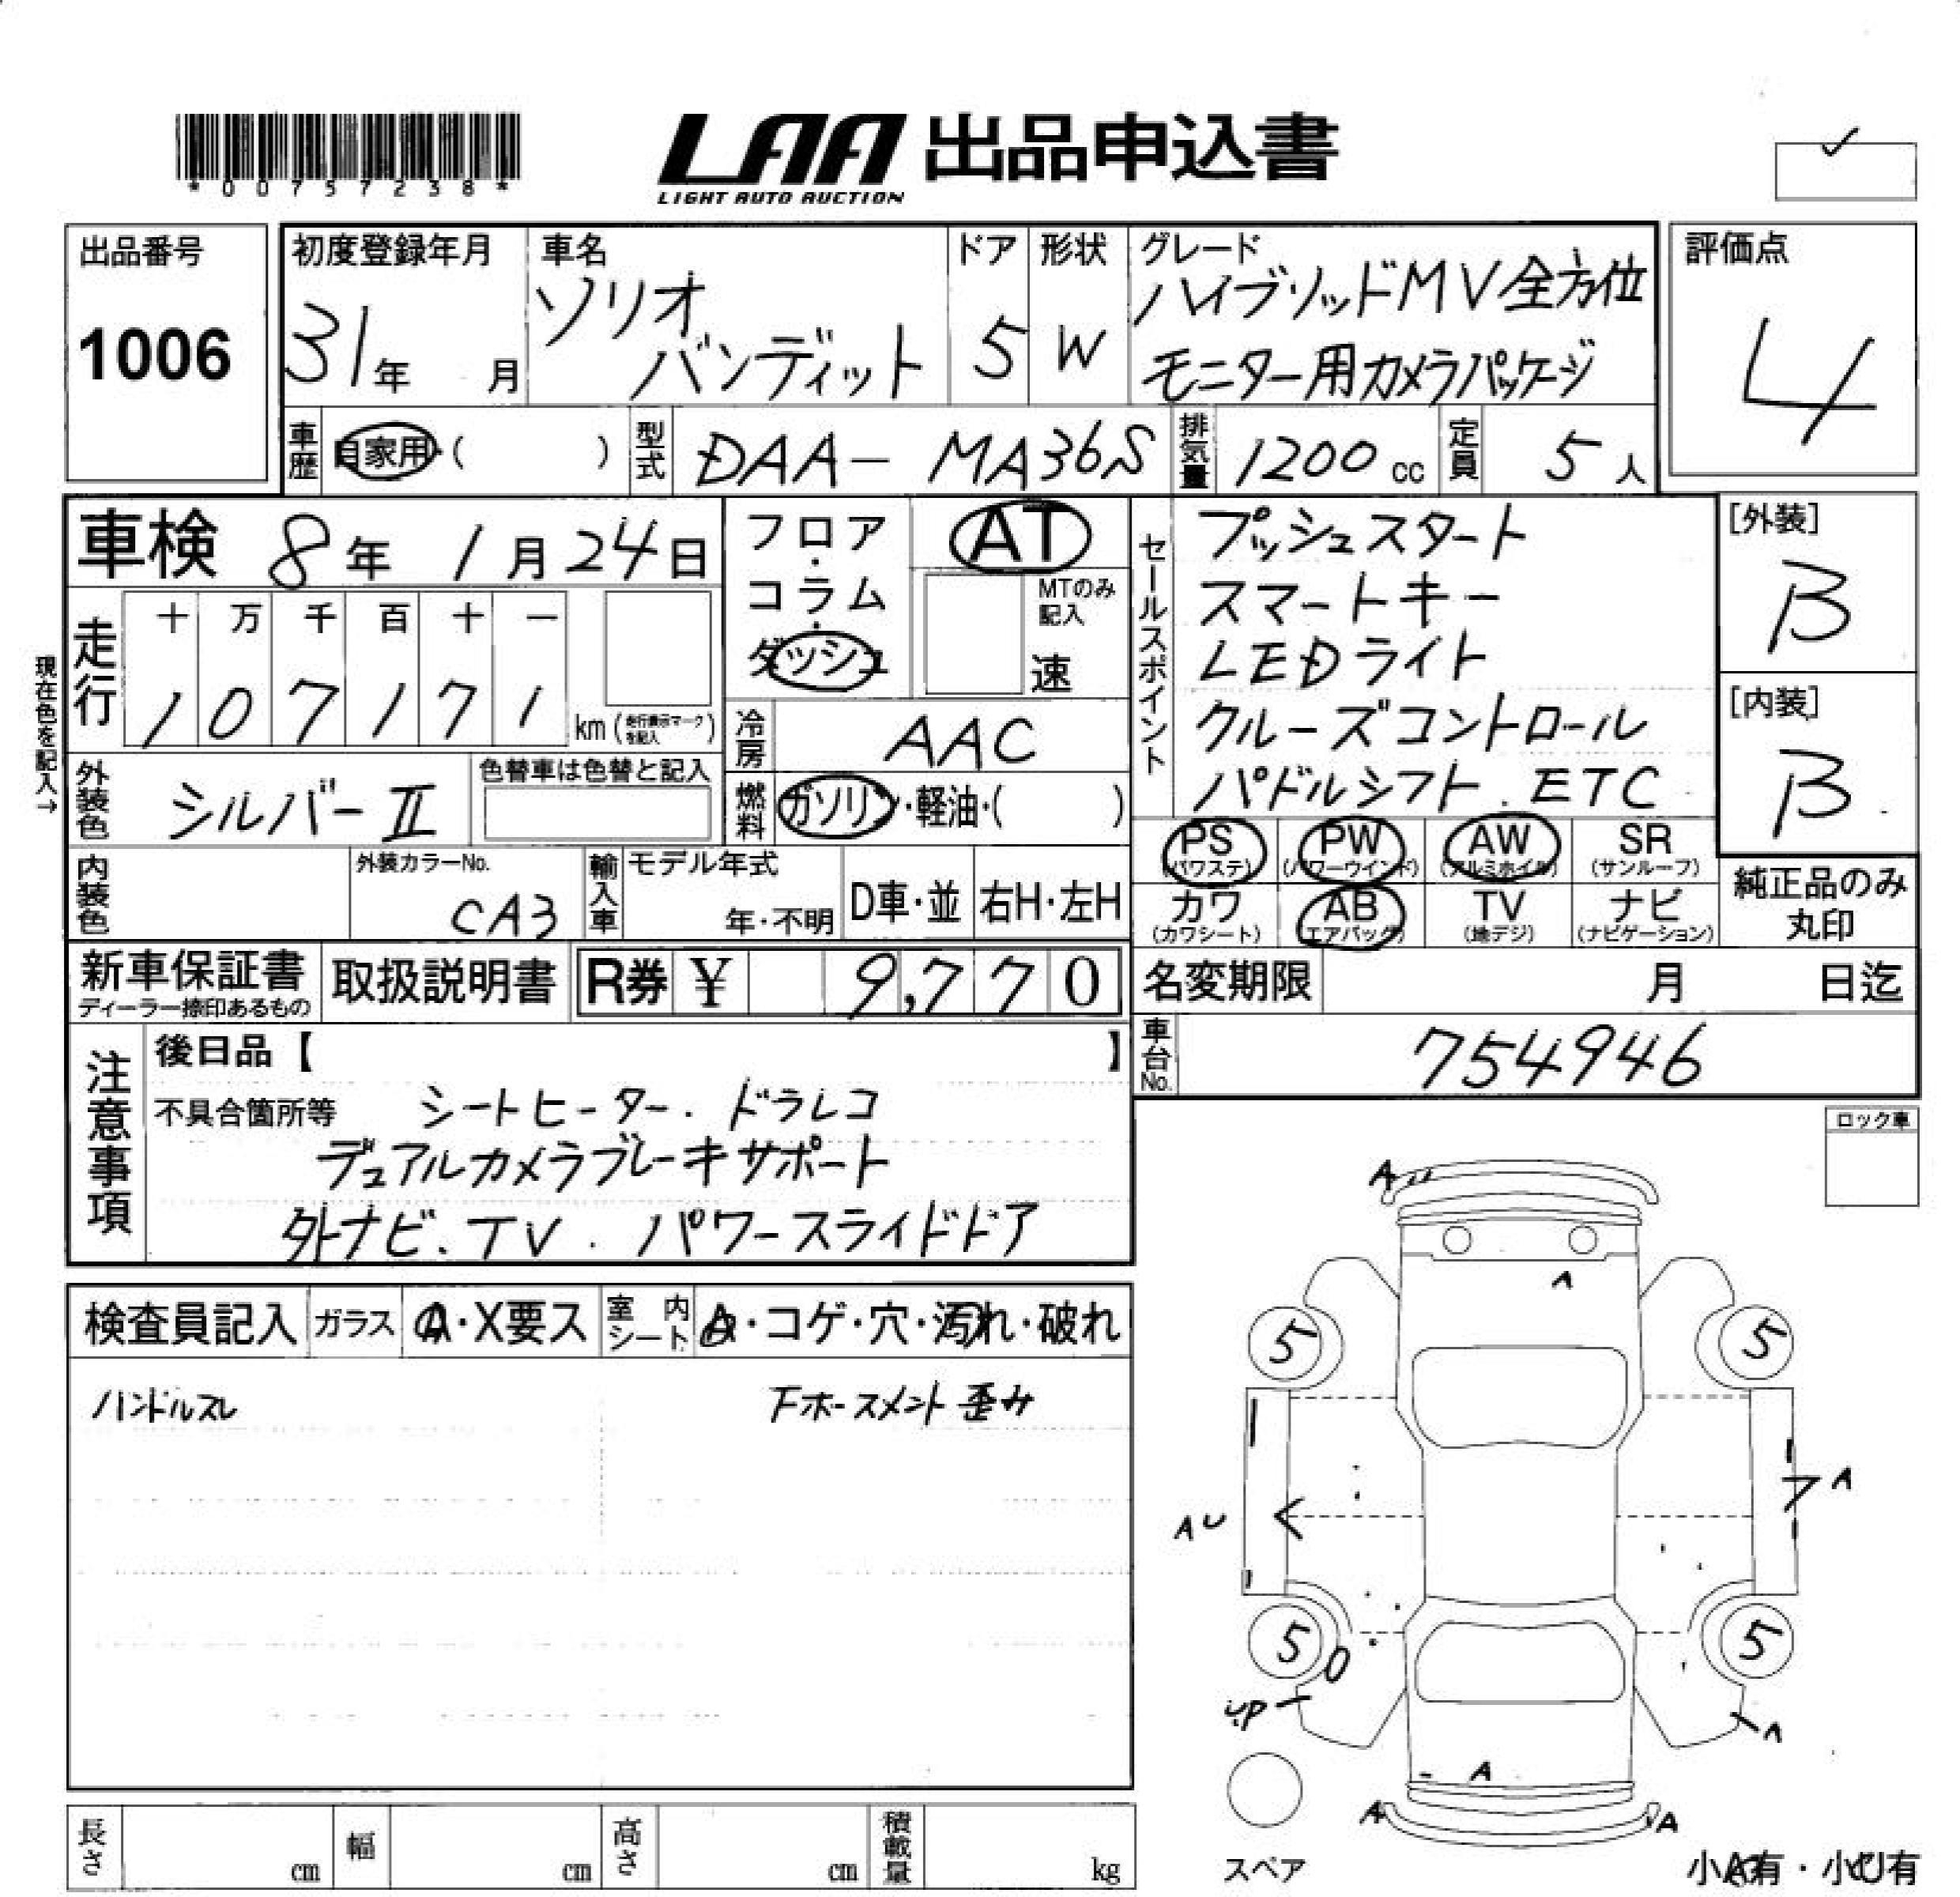 *00757238*
LAA 出品申込書
LIGHT AUTO AUCTION
出品番号
1006
初度登録年月
31年 月
車名
ソリオ
バンディット
ドア
5
形状
W
グレード
ハイブリッドMV全方位
モニター用カメラパッケージ
評価点
4
車歴 自家用・( )
型式 DAA- MA36S
排気量 1200cc
定員 5人
車検 8年 1月24日
フロア・コラム・ダッシュ
AT
MTのみ記入
速
セールスポイント
プッシュスタート
スマートキー
LEDライト
クルーズコントロール
パドルシフト.ETC
[外装]
B
[内装]
B
現在色を記入→
走行
十 万 千 百 十 一
1 0 7 1 7 1 km (走行表示マークを記入)
冷房 AAC
外装色 シルバーⅡ
色替車は色替と記入
燃料 ガソリン・軽油・( )
PS (パワステ)
PW (パワーウインド)
AW (アルミホイル)
SR (サンルーフ)
カワ (カワシート)
AB (エアバッグ)
TV (地デジ)
ナビ (ナビゲーション)
純正品のみ
丸印
内装色
外装カラーNo.
CA3
輸入車
モデル年式
年・不明
D車・並
右H・左H
新車保証書
ディーラー捺印あるもの
取扱説明書
R券 ¥ 9,770
名変期限 月 日迄
車台No. 754946
注意事項
後日品【 】
不具合箇所等 シートヒーター. ドラレコ
デュアルカメラブレーキサポート
外ナビ.TV. パワースライドドア
ロック車
検査員記入 ガラス A・X要ス
室内シート A・コゲ・穴・汚れ・破れ
ハンドルスレ
下ホースメント 歪み
A
A
5
5
A
AU
5
5
UP
A
A
A
A
スペア
小A有・小U有
長さ cm
幅 cm
高さ cm
積載量 kg